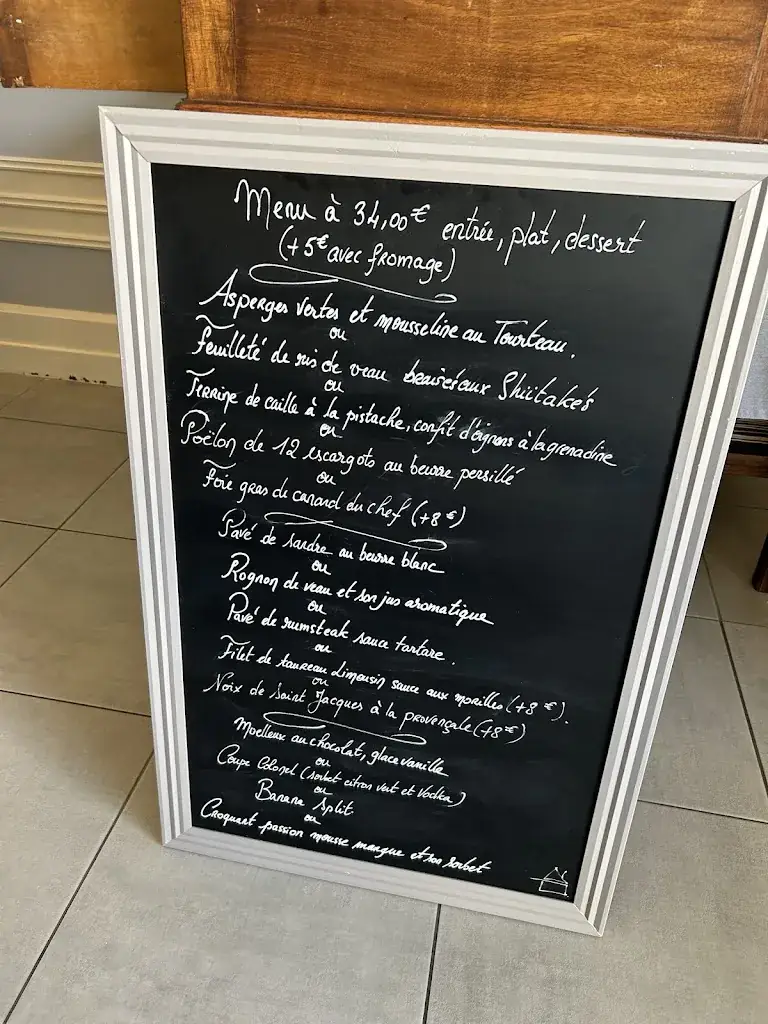 Menu à 34,00€ entrée, plat, dessert
(+5€ avec fromage)
Asperges vertes et mousseline au Tourteau.
ou
Feuilleté de ris de veau braisés aux Shiitakés
ou
Terrine de caille à la pistache, confit d'oignons à la grenadine
ou
Poëlon de 12 escargots au beurre persillé
ou
Foie gras de canard du chef (+8€)
Pavé de sandre au beurre blanc
ou
Rognon de veau et son jus aromatique
ou
Pavé de rumsteak sauce tartare.
ou
Filet de taureau Limousin sauce aux morilles (+8 €).
ou
Noix de Saint Jacques à la provençale (+8€)
Moelleux au chocolat, glace vanille
ou
Coupe Colonel (sorbet citron vert et Vodka)
ou
Banana Split.
ou
Croquant passion mousse mangue et son sorbet